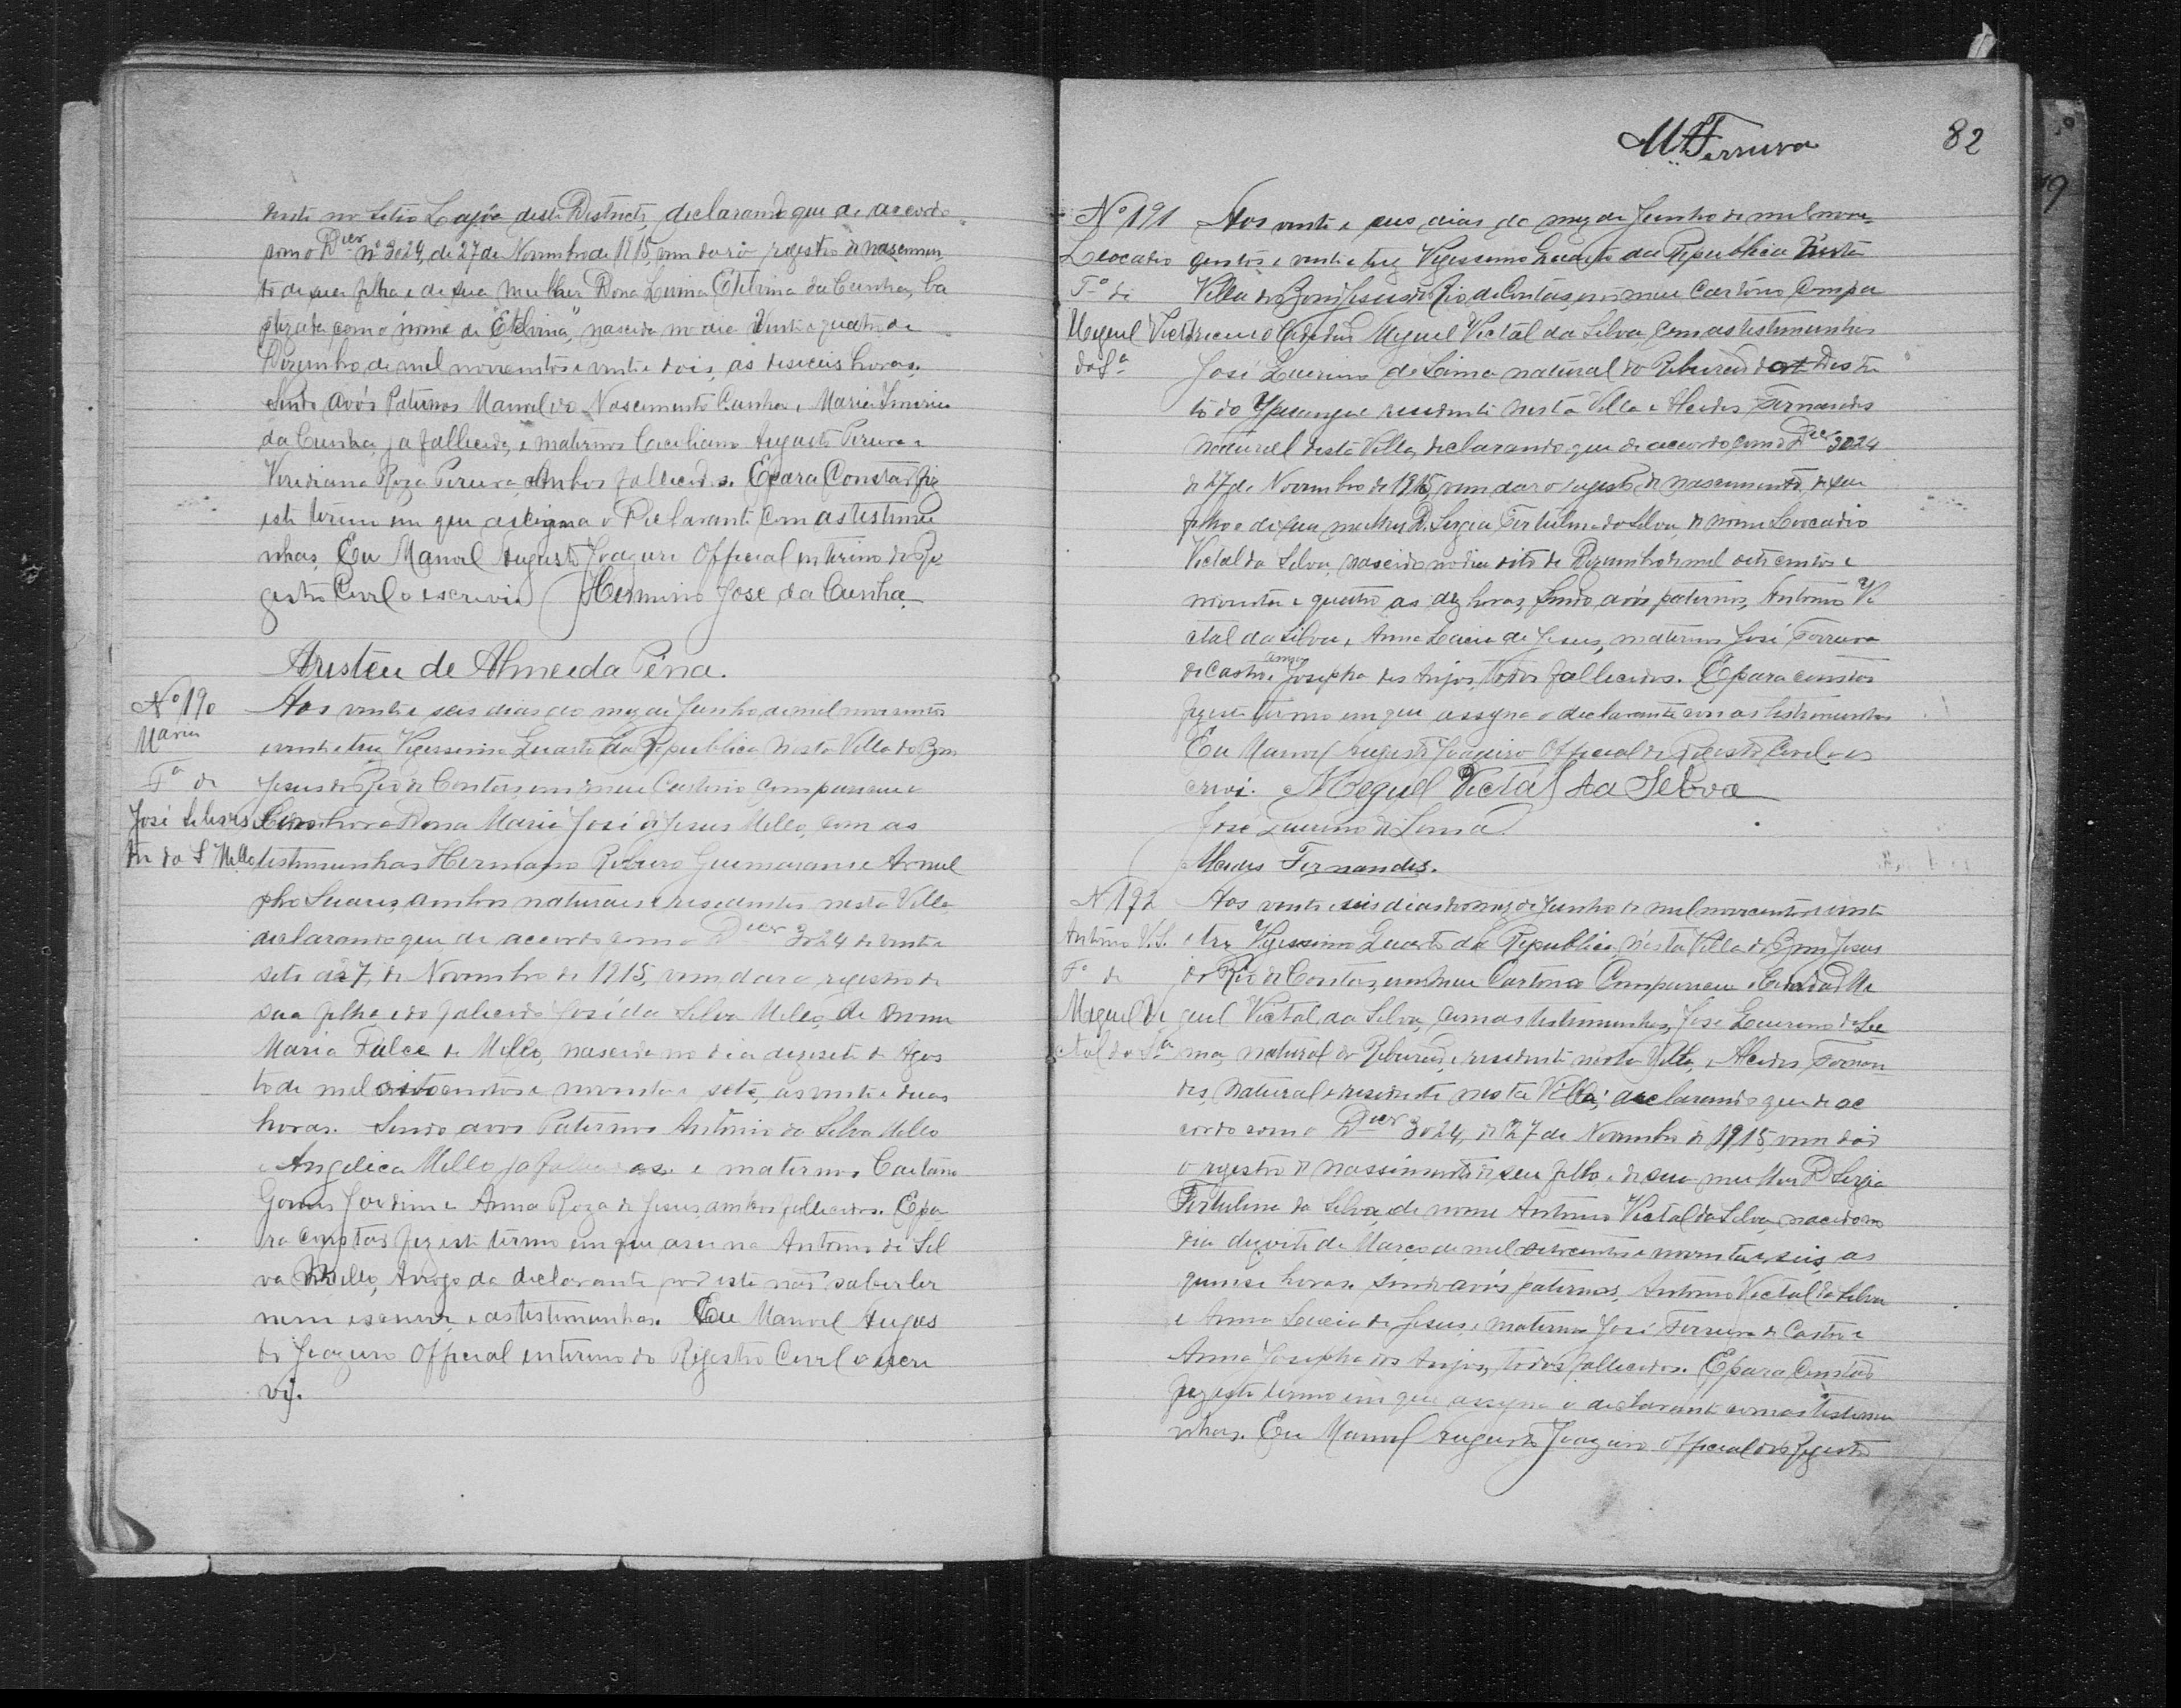 neste no sitio Lajôe deste Districto, declarando que de accordo
com o Decr nº 3024, de 27 de Novembro de 1915, vem dar o registro de nascimen
to de sua filha e de sua mulher Dona Etelvina da Cunha, ba
ptizada com o nome de "Etelvina", nascida no dia vinte e quatro de
Dezembro de mil novecentos e vinte e dois, as deseceis horas,
sendo avós Paternos Manoel do Nascimento Cunha e Maria
da Cunha, ja fallecida, e maternos Caciliano Augusto Pereira e
Veridiana Roza Pereira, ambos fallecidos. E para Constar fiz
este termo em que assigna o Declarante com as testemu
nhas, Eu Manoel Augusto Joazeiro Official interino do Re
gistro Civel o escrevi. Herminio José da Cunha
Aristeu de Almeida Pena.
Nº 190
Maria
Fª de
José Silves
tre da S Mello
Aos vinte e seis dias do mez de Junho de mil novecentos
e vinte e trez Vigessimo Quarto da Republica nesta Villa do Bom
Jesus do Rio de Contas em meu Cartorio Compareceu a
Senhora Dona Maria José de Jesus Mello, com as
testimunhas Hermano Ribeiro Guimarans e Arnul
pho Suares, ambos naturais e residentes nesta Villa,
declarando que de accordo com o Decr 3024 de vinte
sete de 27, de Novembro de 1915, vem dar o registro de
sua filha e do falecido José da Silva Mello, de nome
Maria Dulce de Mello, nascida no dia dezesete de Agos
to de mil oitocentos e noventa e sete, as vinte e duas
horas. Sendo avos Paternos Antonio da Silva Mello
e Angelica Mello ja e maternos Caetano
Gomes Jardim e Anna Roza de Jesus, ambos fallecidos. E pa
ra constar fiz este termo em que asigna Antonio da Sil
va Mello, Arogo da declarante por esta não saber ler
nem escrever, e as testimunhas. Eu Manoel Augus
to Joazeiro Official interino do Registro Civel o escre
vi.
MAFerreira
82
Nº 191
Leocadio
Fº de
Miguel Victal
da Sª
Aos vinte e seis dias do mez de Junho de mil nove
centos e vinte e trez Vigessimo Quarto da Republica nesta
Villa do Bom Jesus do Rio de Contas, em meu Cartorio Compa
receu o Cidadão Miguel Victal da Silva, com as testimunhas
José Luerino de Lima natural do Ribeirão do Distri
to do Ypuangue residente nesta Villa e Alcides Fernandes
natural desta Villa, declarando que de accordo com o Decr 3024
de 27 de Novembro de 1915, vem dar o registo de nascimento de seu
filho e de sua mulher D. Sergia Tertulina da Silva, de nome Leocadio
Victal da Silva, nascido no dia oito de Dezembro de mil oitocentos e
noventa e quatro as dez horas, sendo avós paternos, Antonio Vi
ctal da Silva, e Anna Lucia de Jesus, maternos José Ferreira
de Castro e Anna Josepha dos Anjos, todos fallecidos. E para constar
fiz este termo em que assigna o declarante com as testimunhas
Eu Manoel Augusto Joazeiro Official do Registo Civel o es
crevi. Miguel Victal da Selva
José Luerino de Lima
Alcides Fernandes.
N 192
Antonio V.S.
Fº de
Miguel Vi
ctal da Sª
Aos vinte e seis dias do mez de Junho de mil novecentos e vinte
e trez Vigessimo Quarto da Republica, nesta Villa do Bom Jesus
do Rio de Contas, em meu Cartorio Compareceu o Cidadão Mi
guel Victal da Silva, com as testimunhas, José Luerino de Li
ma, natural do Ribeirão, e residente nesta Villa, e Alcides Fernan
des, natural e residente nesta Villa, declarando que de ac
cordo com o Decr 3024, de 27 de Novembro de 1915, vem dar
o registro de nassimento de seu filho e de sua mulher D Sergia
Tertulina da Silva, de nome Antonio Victal da Silva, nacido no
dia dezoito de Março de mil oitocentos e noventa e seis, as
quinse horas, sendo avós paternos, Antonio Victal da Silva
e Anna Lucia de Jesus, e maternos José Ferreira de Castro e
Anna Josepha dos Anjos, todos fallecidos. E para Constar
fiz este termo em que assigna o declarante com as testimu
nhas. Eu Manoel Augusto Joazeiro Official do Registro